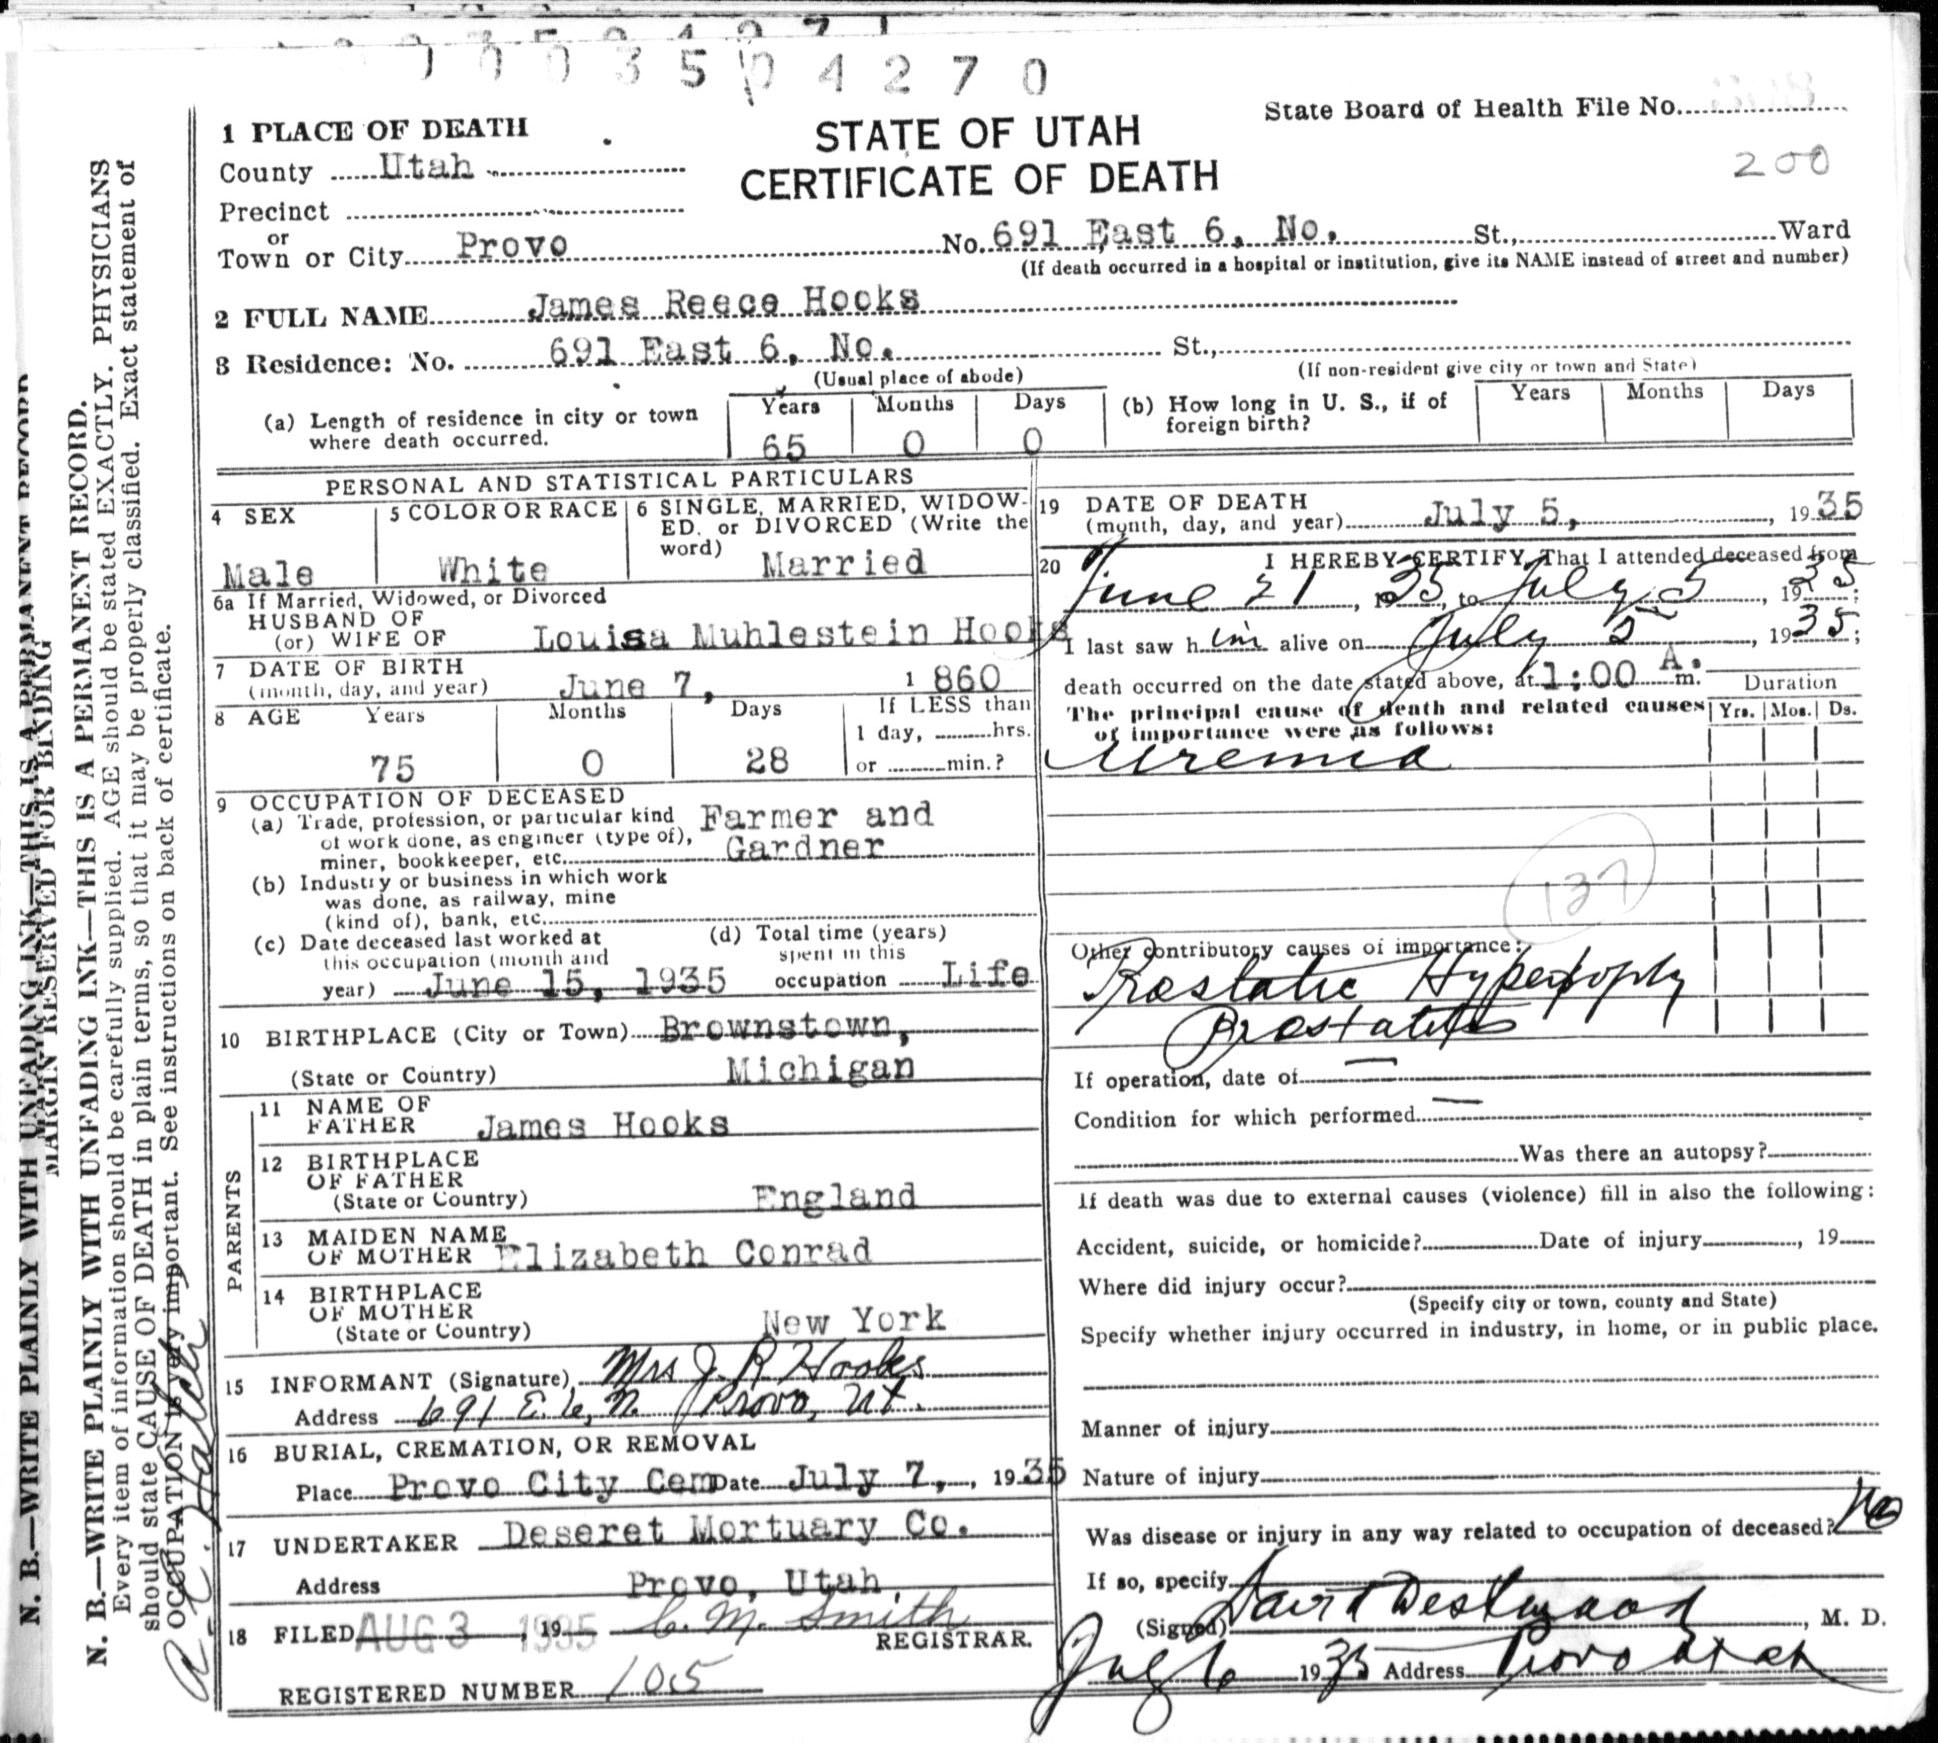 0 0 3 5 0 4 2 7 0
State Board of Health File No.
200
STATE OF UTAH
CERTIFICATE OF DEATH
1 PLACE OF DEATH
County Utah
Precinct
or
Town or City Provo No. 691 East 6, No. St., Ward
(If death occurred in a hospital or institution, give its NAME instead of street and number)
2 FULL NAME James Reece Hooks
3 Residence: No. 691 East 6, No. St.,
(Usual place of abode) (If non-resident give city or town and State)
(a) Length of residence in city or town where death occurred. Years 65 Months 0 Days 0
(b) How long in U. S., if of foreign birth? Years Months Days
PERSONAL AND STATISTICAL PARTICULARS
4 SEX
Male
5 COLOR OR RACE
White
6 SINGLE, MARRIED, WIDOW-
ED, or DIVORCED (Write the
word) Married
6a If Married, Widowed, or Divorced
HUSBAND OF
(or) WIFE OF Louisa Muhlestein Hooks
7 DATE OF BIRTH
(month, day, and year) June 7, 1860
8 AGE Years 75 Months 0 Days 28
If LESS than
1 day, hrs.
or min.?
9 OCCUPATION OF DECEASED
(a) Trade, profession, or particular kind
of work done, as engineer (type of),
miner, bookkeeper, etc. Farmer and
Gardner
(b) Industry or business in which work
was done, as railway, mine
(kind of), bank, etc.
(c) Date deceased last worked at
this occupation (month and
year) June 15, 1935
(d) Total time (years)
spent in this
occupation Life
10 BIRTHPLACE (City or Town) Brownstown,
(State or Country) Michigan
PARENTS
11 NAME OF
FATHER James Hooks
12 BIRTHPLACE
OF FATHER
(State or Country) England
13 MAIDEN NAME
OF MOTHER Elizabeth Conrad
14 BIRTHPLACE
OF MOTHER
(State or Country) New York
15 INFORMANT (Signature) Mrs J. R Hooks
Address 691 E. 6, N. Provo, Ut.
16 BURIAL, CREMATION, OR REMOVAL
Place Provo City Cem Date July 7, 1935
17 UNDERTAKER Deseret Mortuary Co.
Address Provo, Utah,
18 FILED AUG 3 1935 19 C. M. Smith
REGISTRAR.
REGISTERED NUMBER 105
19 DATE OF DEATH
(month, day, and year) July 5, 1935
20 I HEREBY CERTIFY, That I attended deceased from
June 21, 1935, to July 5, 1935;
I last saw him alive on July 5, 1935;
death occurred on the date stated above, at 1:00 A. m.
The principal cause of death and related causes
of importance were as follows:
Duration
Yrs. Mos. Ds.
Uremia
137
Other contributory causes of importance:
Prostatic Hypertrophy
Prostatitis
If operation, date of —
Condition for which performed —
Was there an autopsy?
If death was due to external causes (violence) fill in also the following:
Accident, suicide, or homicide? Date of injury , 19
Where did injury occur?
(Specify city or town, county and State)
Specify whether injury occurred in industry, in home, or in public place.
Manner of injury
Nature of injury
Was disease or injury in any way related to occupation of deceased? No
If so, specify
(Signed) David Westwood, M. D.
1935 Address Provo Utah
N. B.—WRITE PLAINLY WITH UNFADING INK—THIS IS A PERMANENT RECORD
MARGIN RESERVED FOR BINDING
N. B.—WRITE PLAINLY WITH UNFADING INK—THIS IS A PERMANENT RECORD.
Every item of information should be carefully supplied. AGE should be stated EXACTLY. PHYSICIANS
should state CAUSE OF DEATH in plain terms, so that it may be properly classified. Exact statement of
OCCUPATION is very important. See instructions on back of certificate.